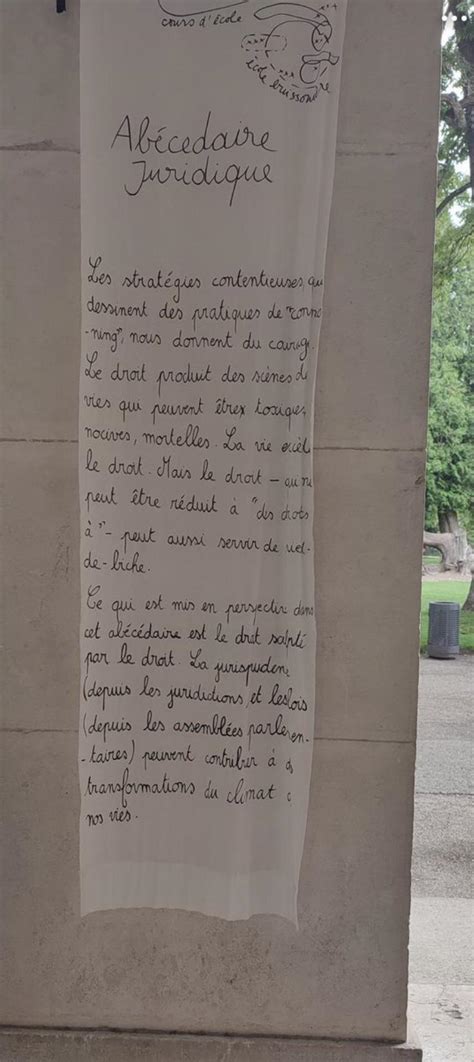 cours d'école
école buissonnière
Abécédaire
Juridique
Les stratégies contentieuses, qui
dessinent des pratiques de "commo
-ning", nous donnent du courage.
Le droit produit des scènes de
vies qui peuvent êtrex toxiques,
nocives, mortelles. La vie excèd
le droit. Mais le droit – qui ne
peut être réduit à "des droits
à" – peut aussi servir de
de-biche.
Ce qui est mis en perspective dans
cet abécédaire est le droit
par le droit. La jurisprudence
(depuis les juridictions, et les lois
(depuis les assemblées parlemen-
-taires) peuvent contribuer à d
transformations du climat d
nos vies.